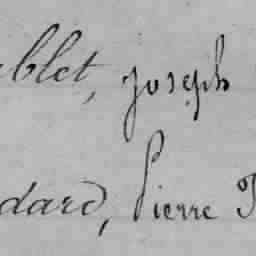 blet, Joseph
dard, Pierre